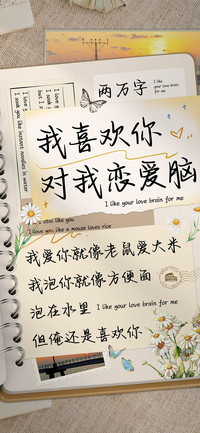 两万字
I like
your love
brain for me
我喜欢你
对我恋爱脑
I like your love brain for me
I love you like a mouse loves rice
我爱你就像老鼠爱大米
我泡你就像方便面
泡在水里 I like your love brain for me
但俺还是喜欢你